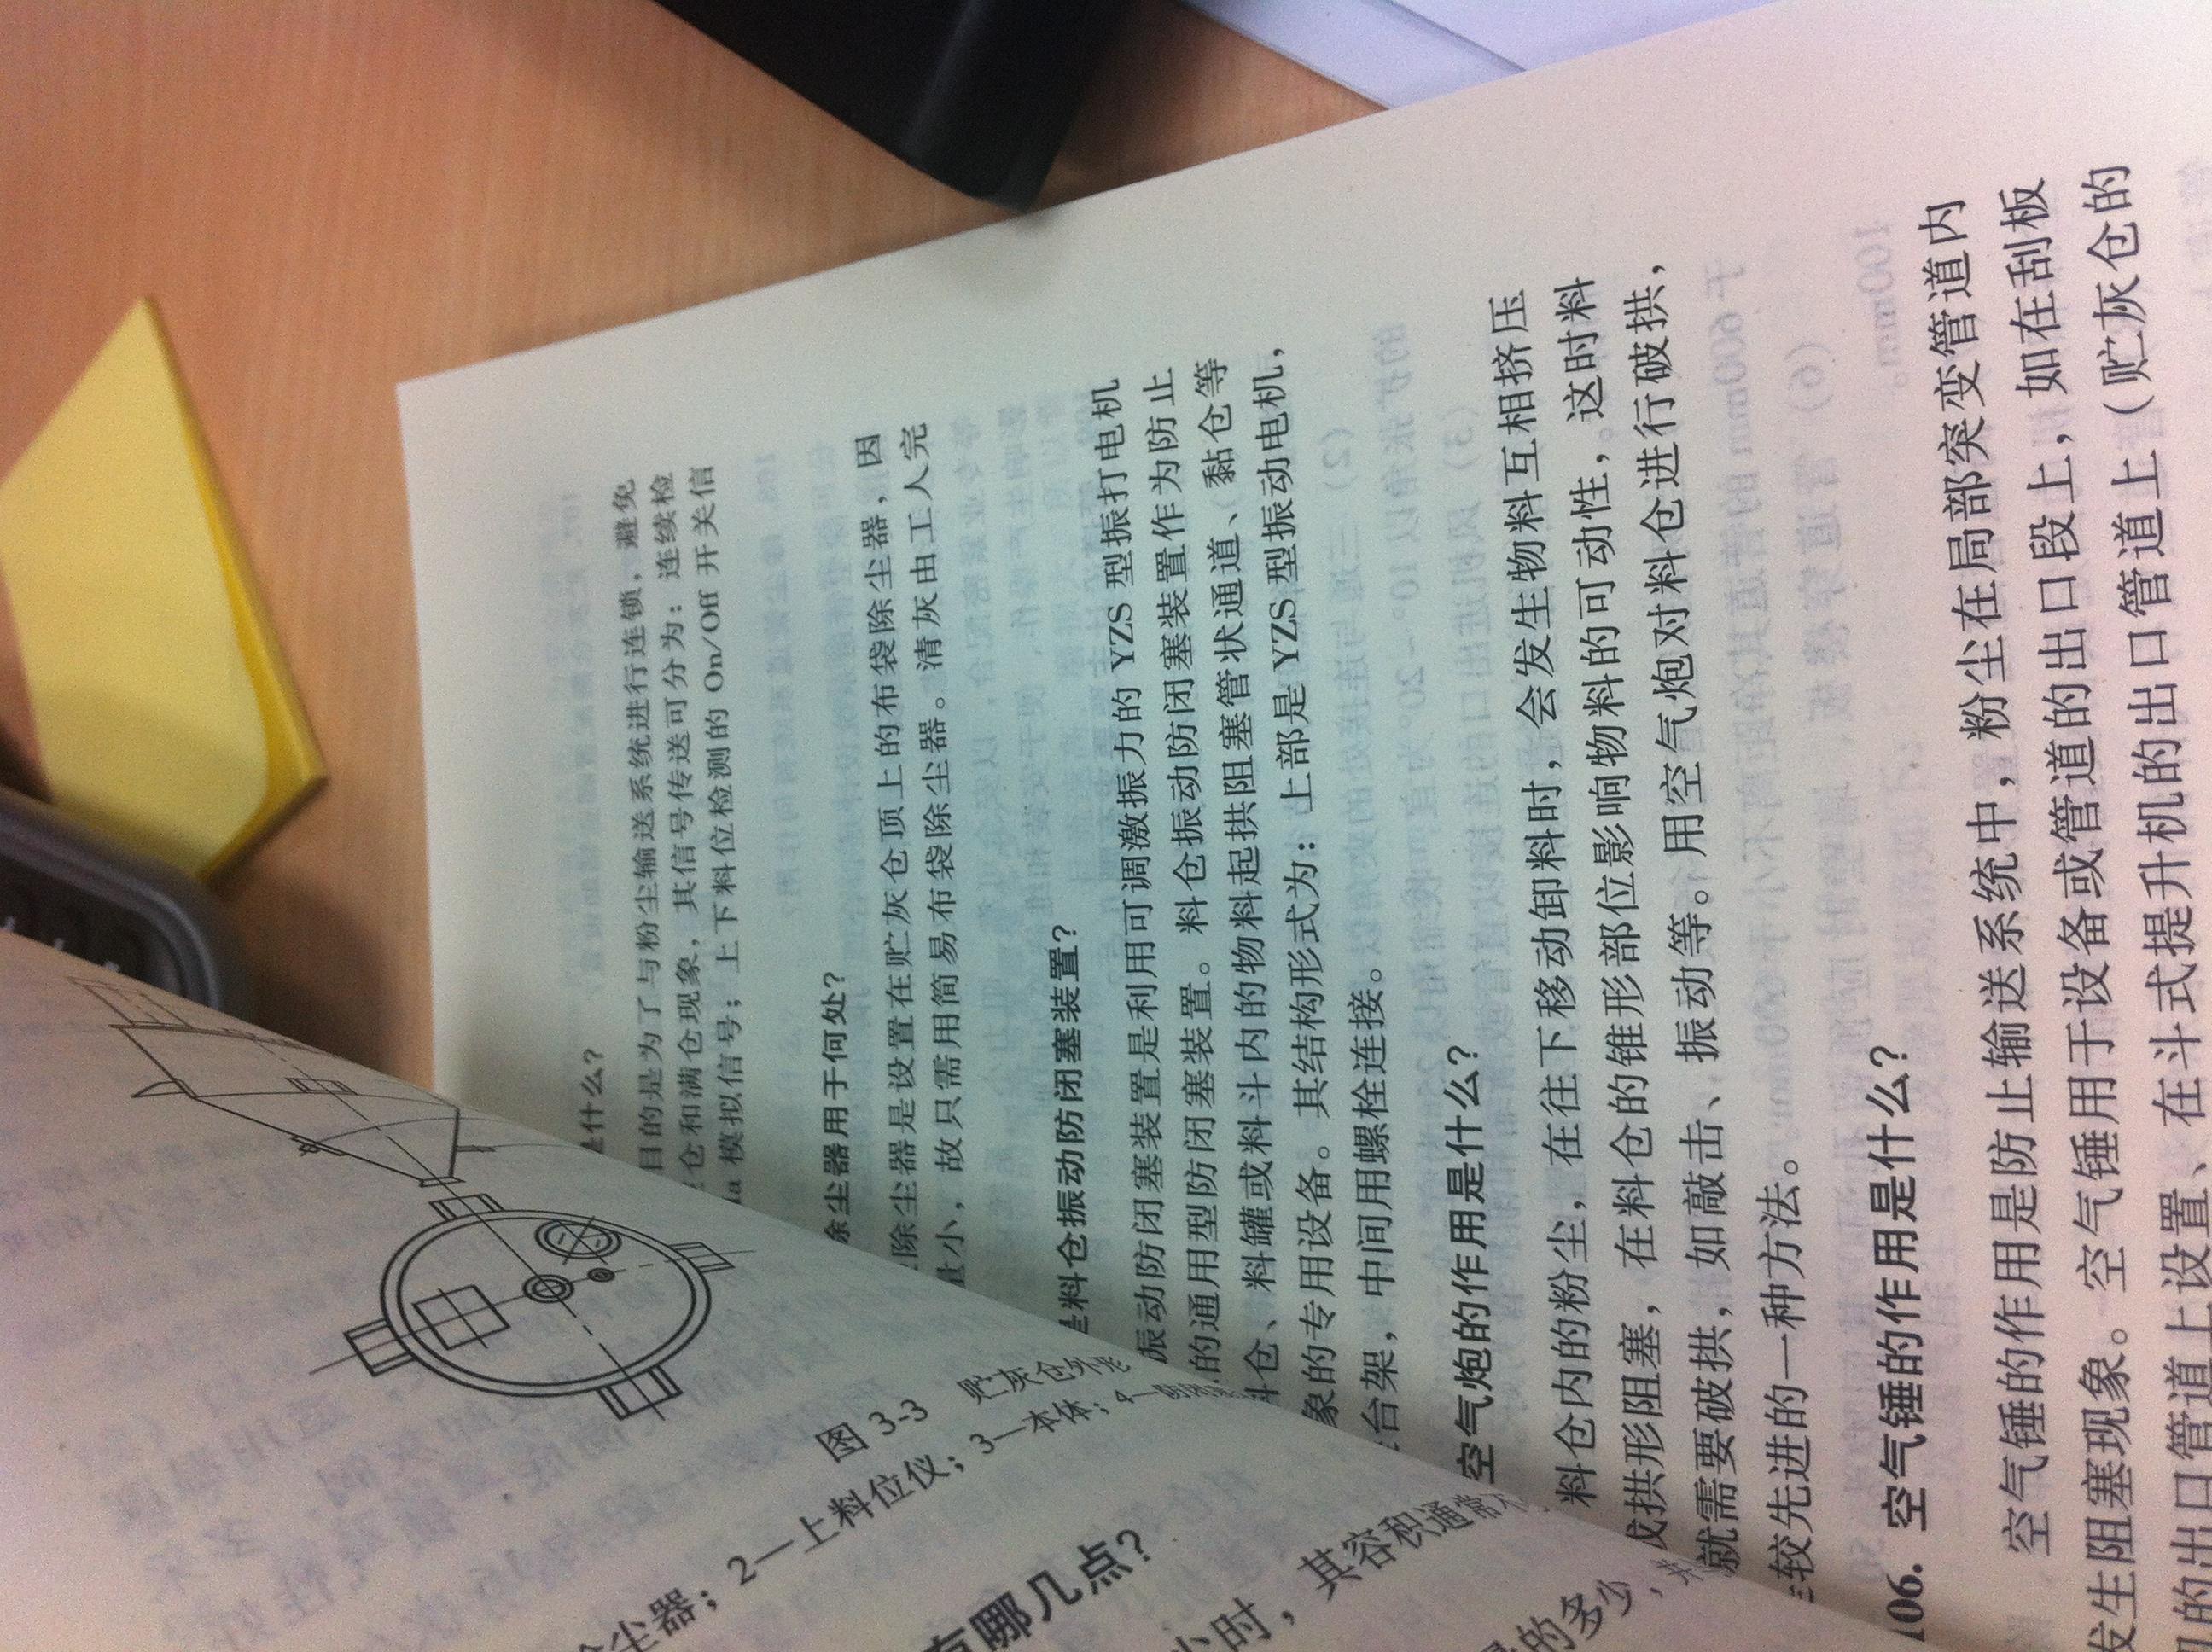 图 3-3 贮灰仓外形
尘器；2—上料位仪；3—本体；4—防闭
有哪几点？
小时，其容积通常不
是什么？
目的是为了与粉尘输送系统进行连锁，避免
仓和满仓现象，其信号传送可分为：连续检
模拟信号；上下料位检测的 On/Off 开关信
除尘器用于何处？
除尘器是设置在贮灰仓顶上的布袋除尘器，因
量小，故只需用简易布袋除尘器。清灰由工人完
是料仓振动防闭塞装置？
振动防闭塞装置是利用可调激振力的 YZS 型振打电机
的通用型防闭塞装置。料仓振动防闭塞装置作为防止
料仓、料罐或料斗内的物料起拱阻塞管状通道、黏仓等
象的专用设备。其结构形式为：上部是 YZS 型振动电机，
台架，中间用螺栓连接。
空气炮的作用是什么？
料仓内的粉尘，在往下移动卸料时，会发生物料互相挤压
成拱形阻塞，在料仓的锥形部位影响物料的可动性，这时料
就需要破拱，如敲击、振动等。用空气炮对料仓进行破拱，
较先进的一种方法。
106. 空气锤的作用是什么？
空气锤的作用是防止输送系统中，粉尘在局部突变管道内
发生阻塞现象。空气锤用于设备或管道的出口段上，如在刮板
的出口管道上设置、在斗式提升机的出口管道上（贮灰仓的